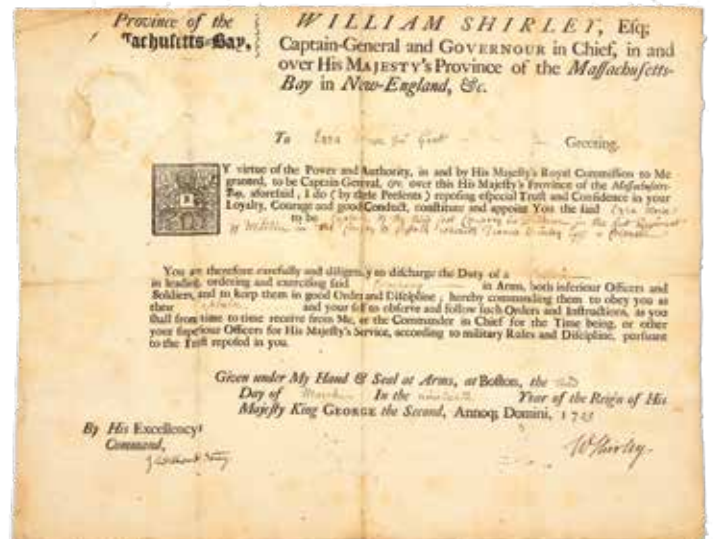 Province of the
Tachusetts-Bay,
WILLIAM SHIRLEY, Esq;
Captain-General and GOVERNOUR in Chief, in and
over His MAJESTY's Province of the Maſſachuſetts-
Bay in New-England, &c.
To Ezra Gent Greeting.
Y virtue of the Power and Authority, in and by His Majeſty's Royal Commiſſion to Me
granted, to be Captain-General, &c. over this His Majeſty's Province of the Maſſachuſetts-
Bay, aforeſaid, I do (by theſe Preſents) repoſing eſpecial Truſt and Confidence in your
Loyalty, Courage and good Conduct, conſtitute and appoint You the ſaid Ezra
to be of the in the firſt Regiment
of Militia in the County of Colonel
You are therefore carefully and diligently to diſcharge the Duty of a
in leading, ordering and exerciſing ſaid Company in Arms, both inferiour Officers and
Soldiers, and to keep them in good Order and Diſcipline; hereby commanding them to obey you as
their and your ſelf to obſerve and follow ſuch Orders and Inſtructions, as you
ſhall from time to time receive from Me, or the Commander in Chief for the Time being, or other
your ſuperiour Officers for His Majeſty's Service, according to military Rules and Diſcipline, purſuant
to the Truſt repoſed in you.
Given under My Hand & Seal at Arms, at Boſton, the
Day of March In the Year of the Reign of His
Majeſty King GEORGE the Second, Annoq; Domini, 17
By His Excellency's
Command,
W Shirley.